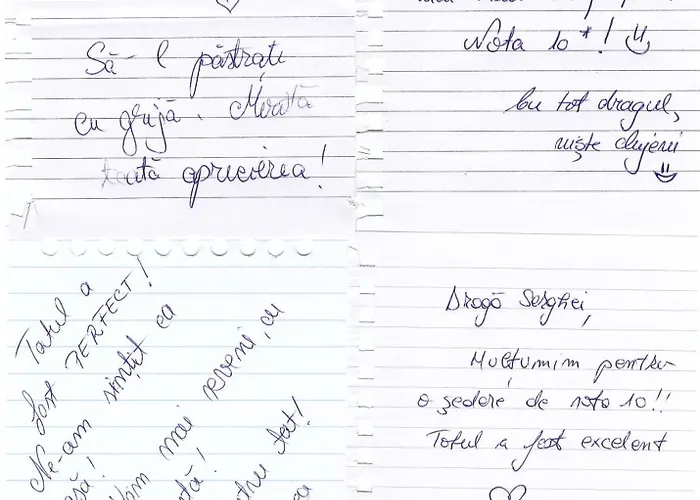 Să-l păstrați
cu grijă. Merită
toată aprecierea!
Nota 10*!
Cu tot dragul,
niște clujeni
Totul a
fost PERFECT!
Ne-am simțit ca
mai reveni, cu
tot!
Dragă Serghei,
Mulțumim pentru
o ședere de nota 10!!
Totul a fost excelent